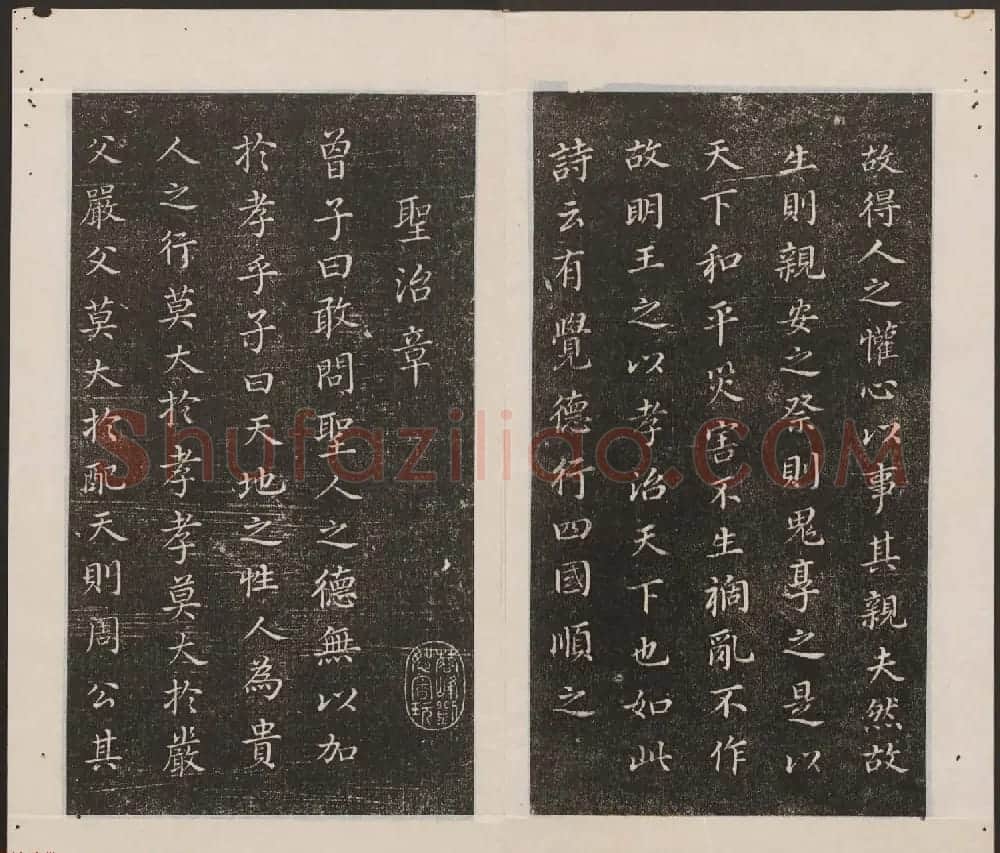 故得人之懽心以事其親夫然故
生則親安之祭則鬼享之是以
天下和平災害不生禍亂不作
故明王之以孝治天下也如此
詩云有覺德行四國順之
聖治章
曾子曰敢問聖人之德無以加
於孝乎子曰天地之性人為貴
人之行莫大於孝孝莫大於嚴
父嚴父莫大於配天則周公其
Shufaziliao.COM